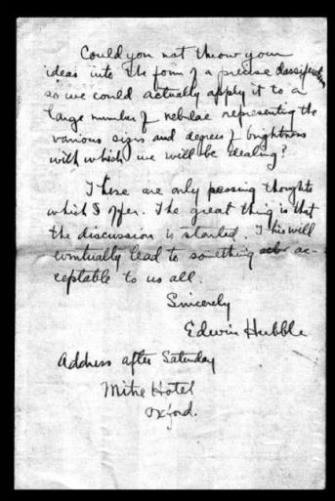 Could you not throw your
ideas into the form of a precise classification
so we could actually apply it to a
large number of nebulae representing the
various signs and degrees of brightness
with which we will be dealing?
These are only passing thoughts
which I offer. The great thing is that
the discussion is started. This will
eventually lead to something ac-
ceptable to us all.
Sincerely
Edwin Hubble
Address after Saturday
Mitre Hotel
Oxford.